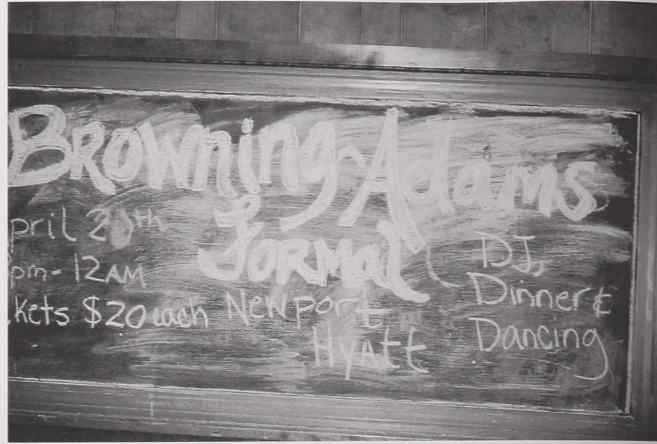 Browning-Adams
Formal
pril 20th
pm-12AM
kets $20 each
Newport
Hyatt
DJ,
Dinner &
Dancing